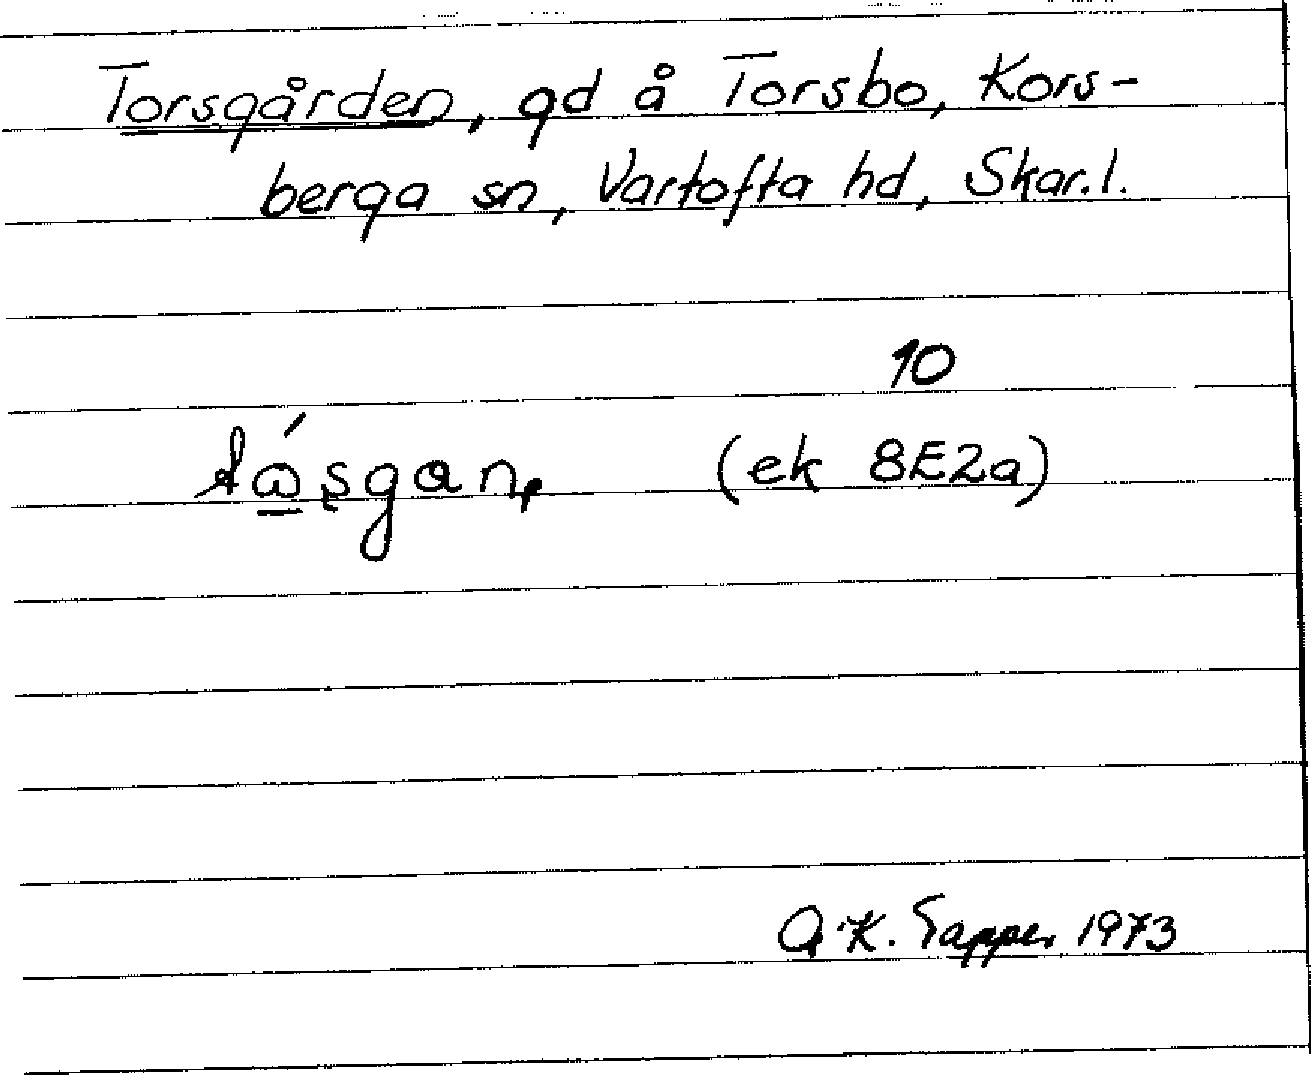 Torsgården, gd å Torsbo, Kors-
berga sn, Vartofta hd, Skar.l.
10
(ek 8E2a)
A-K. Tapper 1973